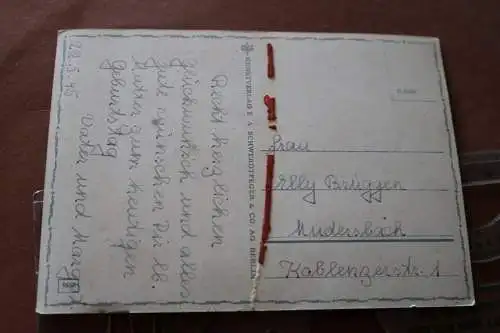 22.5.45
Recht herzlichen
Glückwunsch und alles
gute wünschen Dir lb.
Mutter zum heutigen
Geburtstag
Vater und
KUNSTVERLAG E. A. SCHWERDTFEGER & CO. AG. BERLIN
Frau
Elly Brüggen
Mudersbach
Koblenzerstr. 1